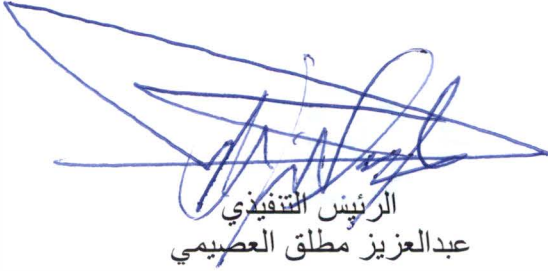 الرئيس التنفيذي
عبدالعزيز مطلق العصيمي